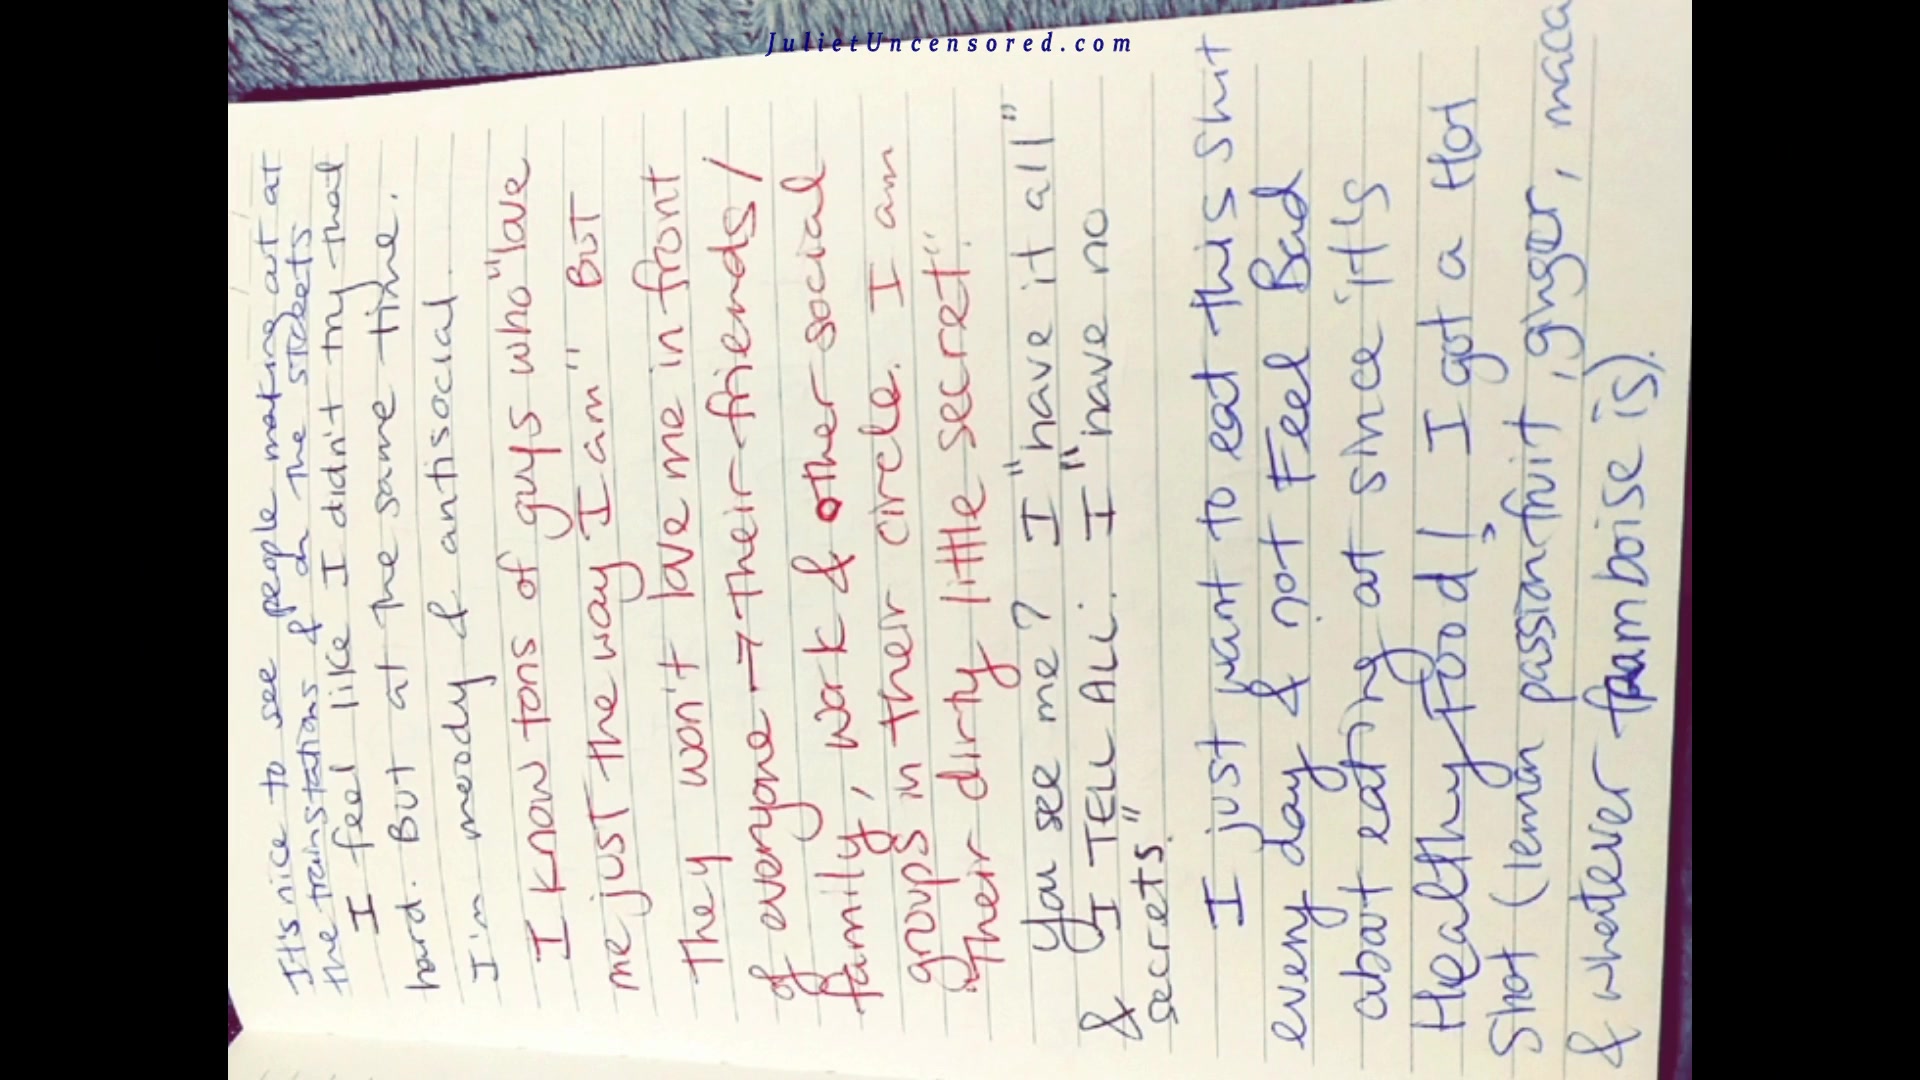 JulietUncensored.com
It's nice to see people making out at
the trainstations & in the streets
I feel like I didn't try that
hard. But at the same time.
I'm moody & antisocial.
I know tons of guys who "love
me just the way I am" But
They won't love me in front
of everyone → their friends/
family, work & other social
groups in their circle. I am
"Their dirty little secret".
You see me? I "have it all"
& I TELL ALL. I "have no
secrets."
I just want to eat this shit
every day & not Feel Bad
about eating at since it's
Healthy Food! I got a Hot
Shot (lemon, passionfruit, ginger, maca
& whatever framboise is).